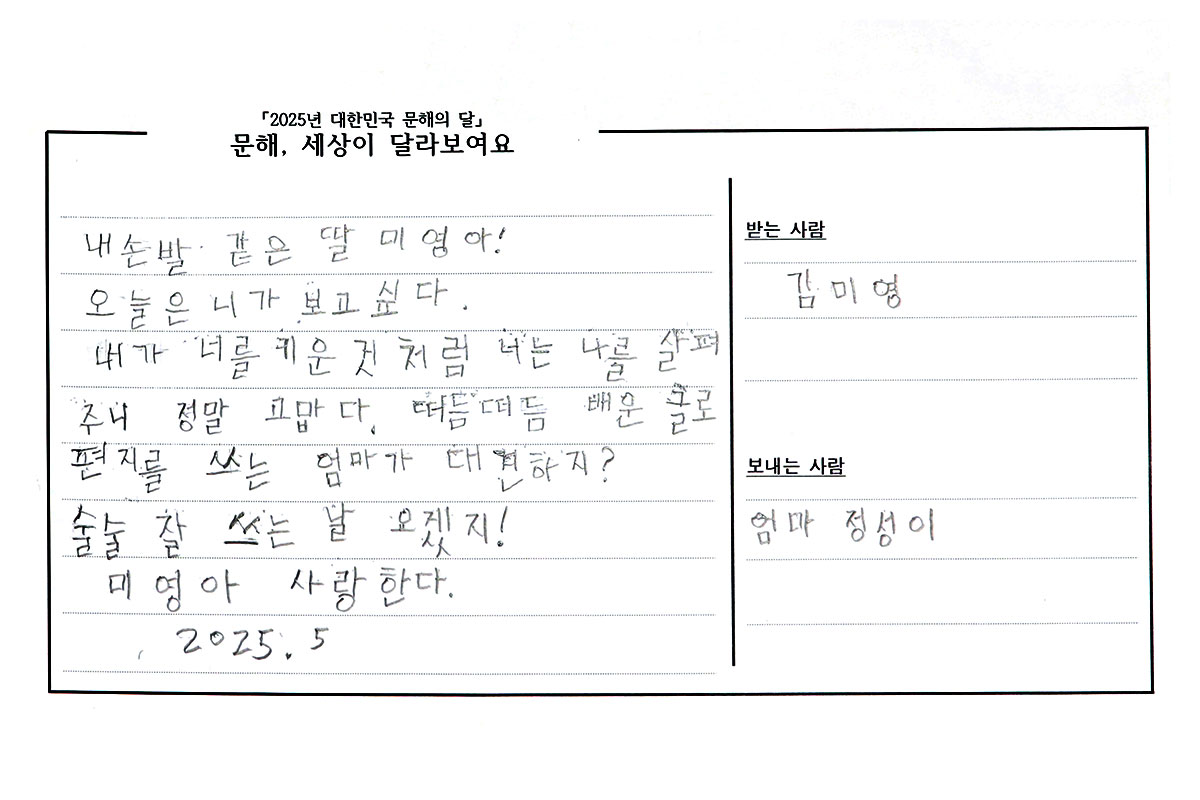 「2025년 대한민국 문해의 달」
문해, 세상이 달라보여요
내 손발 같은 딸 미영아!
오늘은 니가 보고 싶다.
내가 너를 키운 것 처럼 너는 나를 살펴
주니 정말 고맙다. 떠듬떠듬 배운 글로
편지를 쓰는 엄마가 대견하지?
술술 잘 쓰는 날 오겠지!
미영아 사랑한다.
2025. 5
받는 사람
김미영
보내는 사람
엄마 정성이